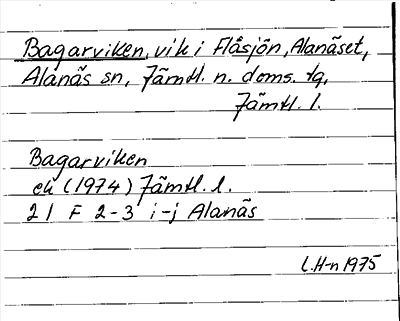 Bagarviken, vik i Flåsjön, Alanäset,
Alanäs sn, Jämtl. n. doms. tg,
Jämtl. l.
Bagarviken
ek (1974) Jämtl. l.
21 F 2-3 i-j Alanäs
L.H-n 1975